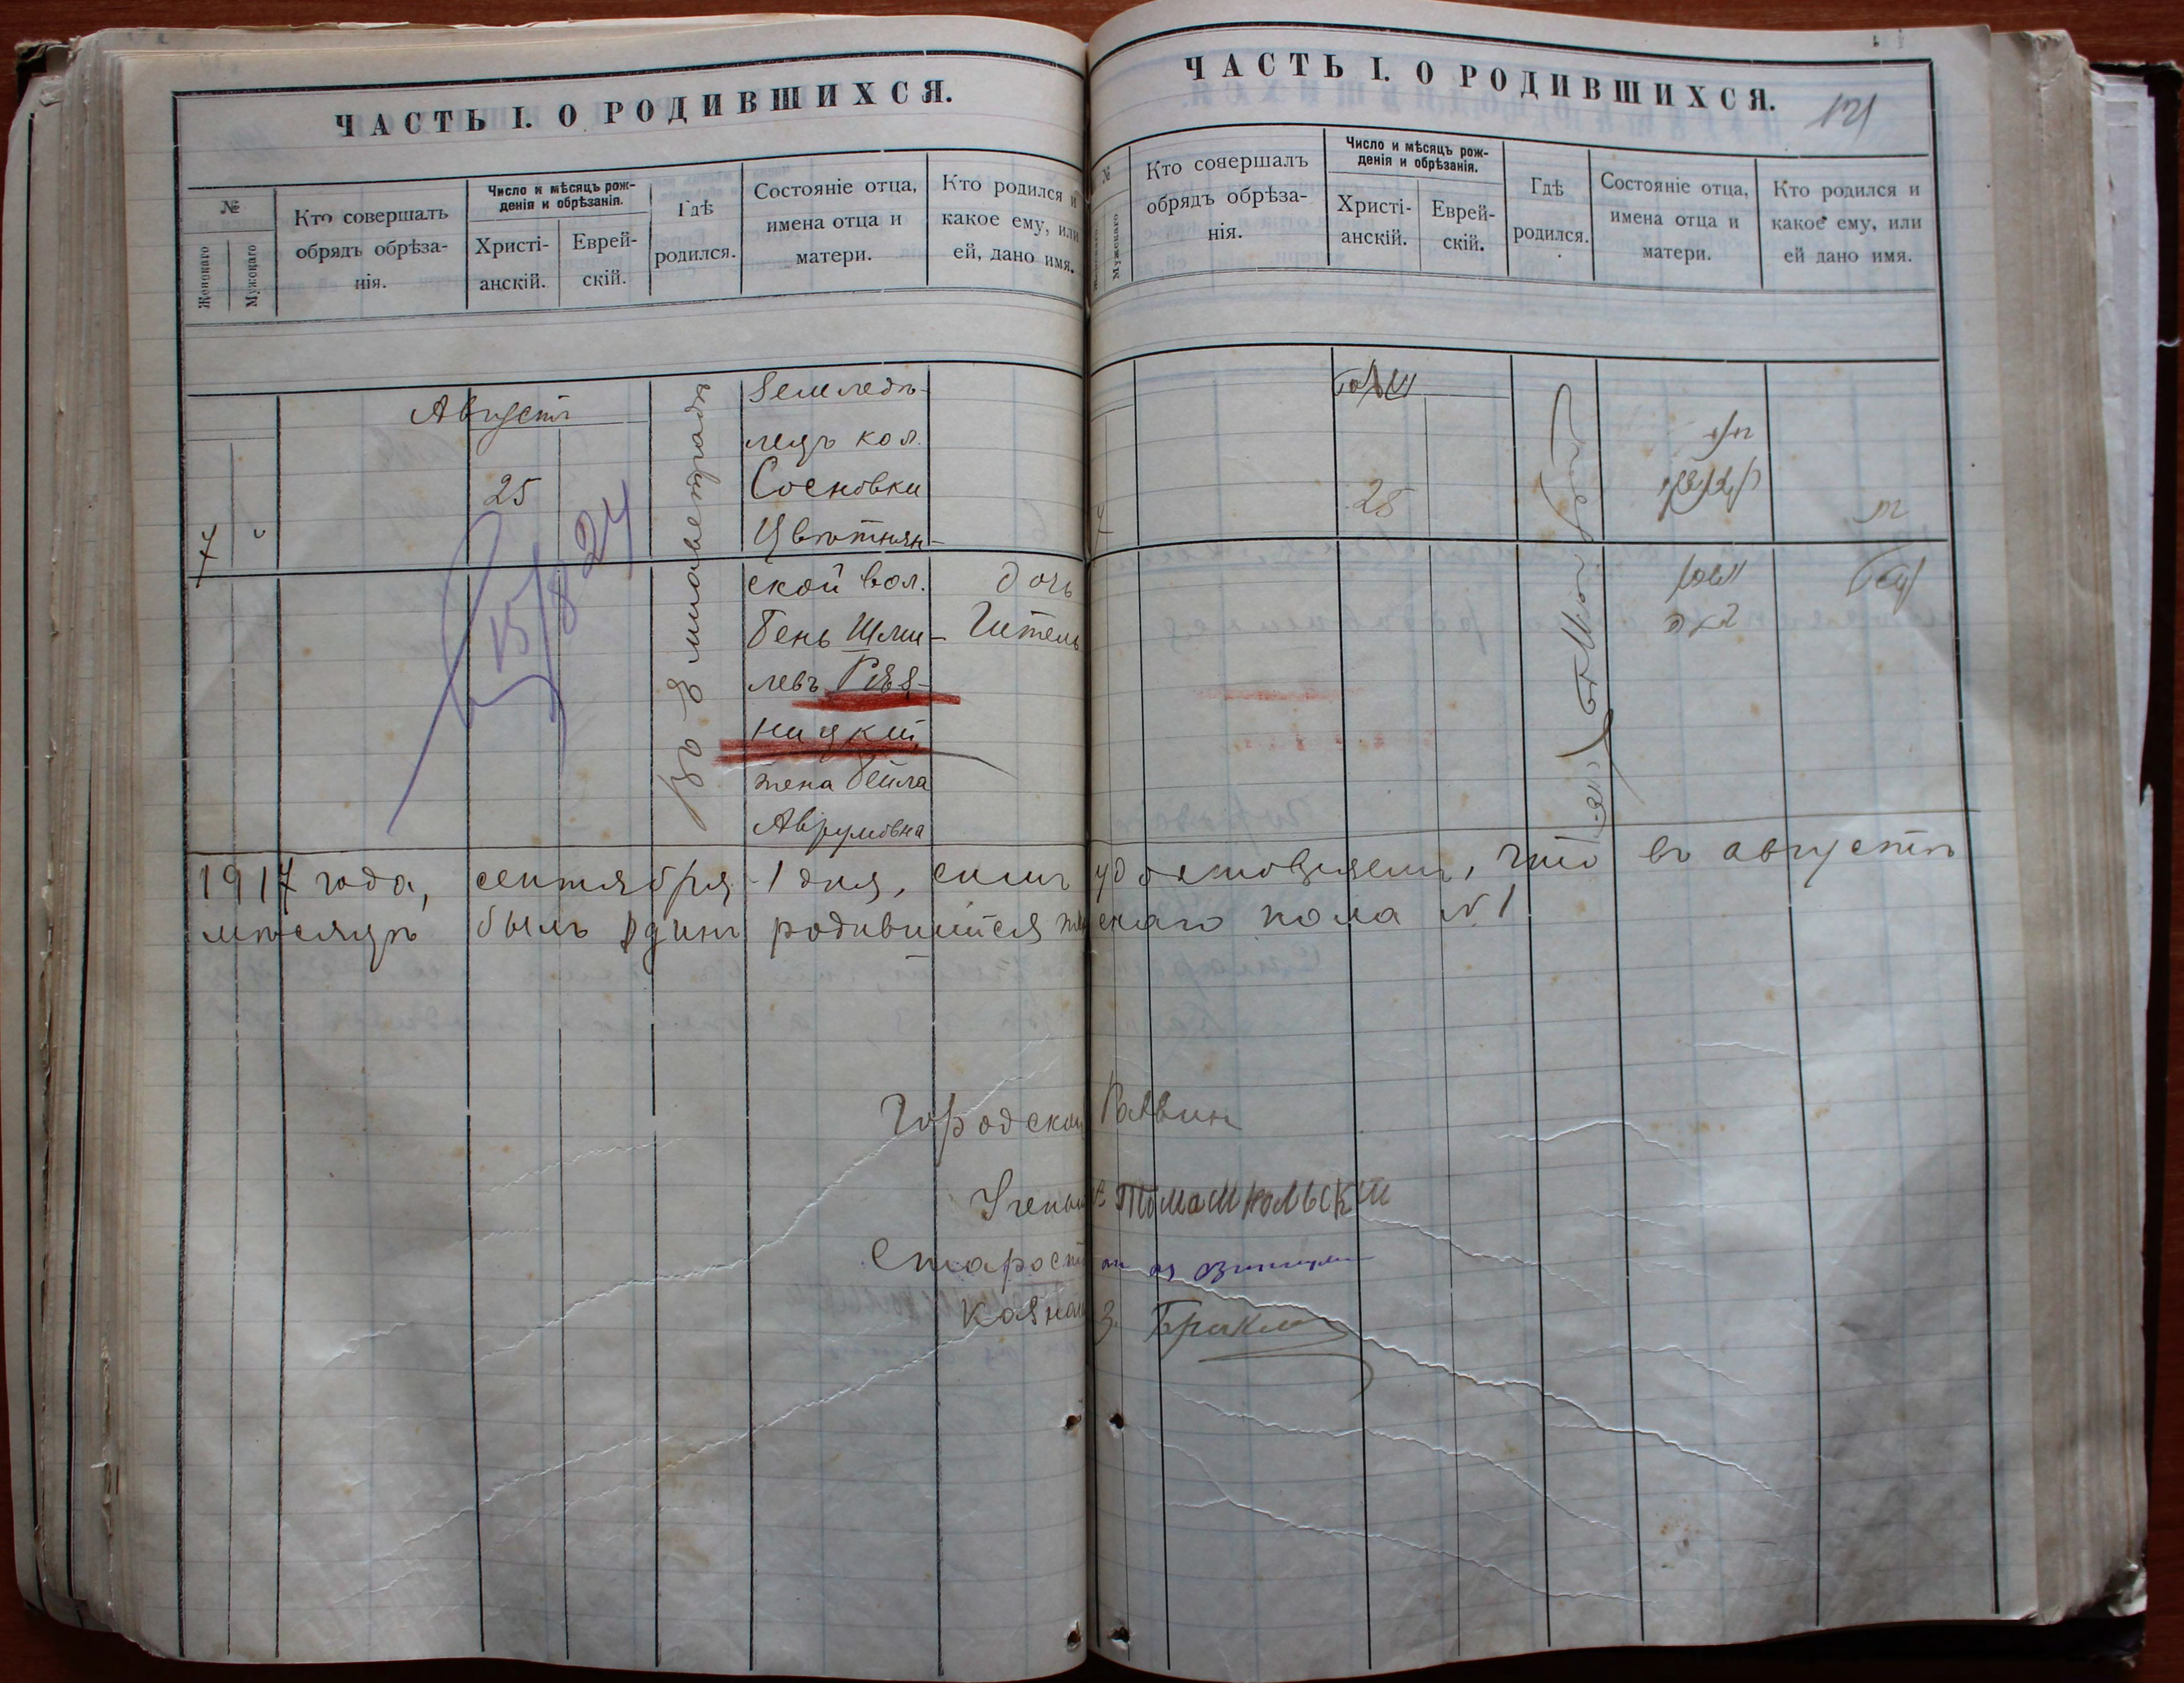 ЧАСТЬ I. О РОДИВШИХСЯ.
№
Женскаго
Мужскаго
Кто совершалъ
обрядъ обрѣза-
нія.
Число и мѣсяцъ рож-
денія и обрѣзанія.
Христі-
анскій.
Еврей-
скій.
Гдѣ
родился.
Состояніе отца,
имена отца и
матери.
Кто родился и
какое ему, или
ей, дано имя.
Августъ
7
25
15/8 24
Въ Елисаветградѣ
Земледѣ-
лецъ кол.
Сосновки
Цвѣтнян-
ской вол.
Бень Шми-
левъ Рѣз-
ницкій,
жена Бейла
Аврумовна
дочь
Гитель
ЧАСТЬ I. О РОДИВШИХСЯ.
121
№
Женскаго
Мужскаго
Кто совершалъ
обрядъ обрѣза-
нія.
Число и мѣсяцъ рож-
денія и обрѣзанія.
Христі-
анскій.
Еврей-
скій.
Гдѣ
родился.
Состояніе отца,
имена отца и
матери.
Кто родился и
какое ему, или
ей дано имя.
7
25
1917 года, сентября 1 дня, симъ удостовѣряемъ, что въ августѣ
мѣсяцѣ былъ одинъ родившійся женскаго пола № 1
Городской Раввин
Ученый Томашпольскій
Староста
Казнач. З.